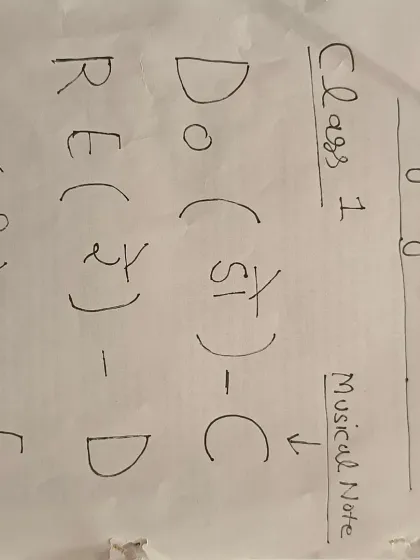 Class 1 Musical Note
↓
DO (डो) - C
RE (रे) - D